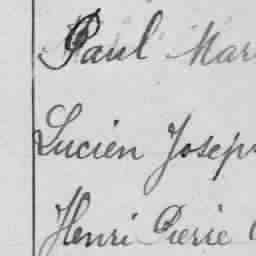 Paul Mar
Lucien Josep
Henri Pierre